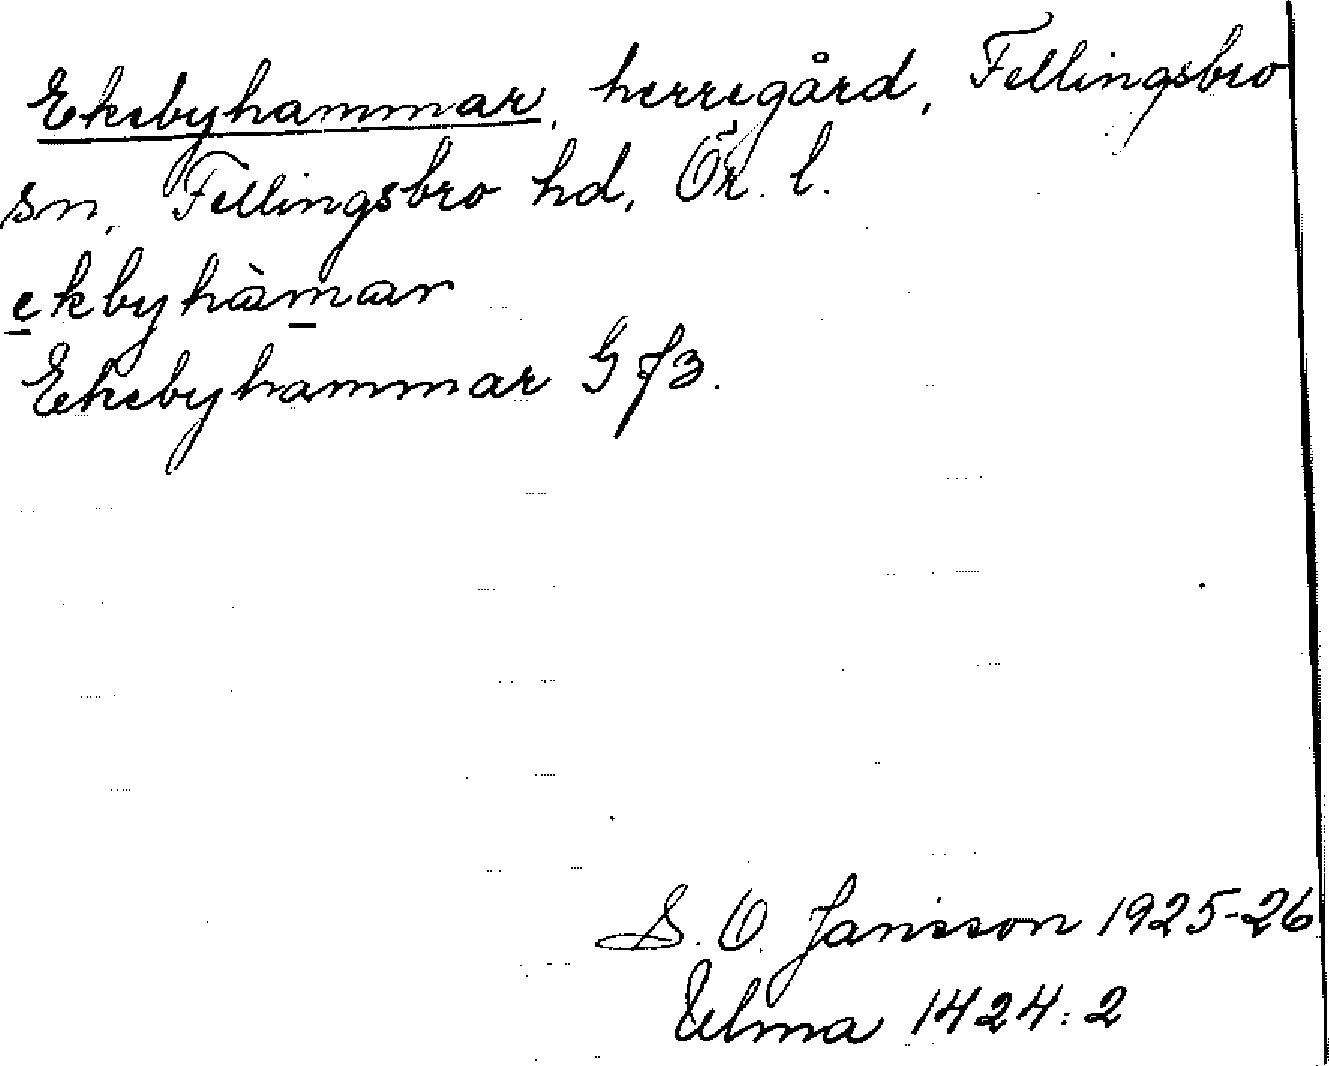 Ekebyhammar, herregård, Fellingsbro
sn, Fellingsbro hd, Ör. l.
ekbyhàmar
Ekebyhammar G f3.
S. O. Jansson 1925-26
Ulma 1424:2